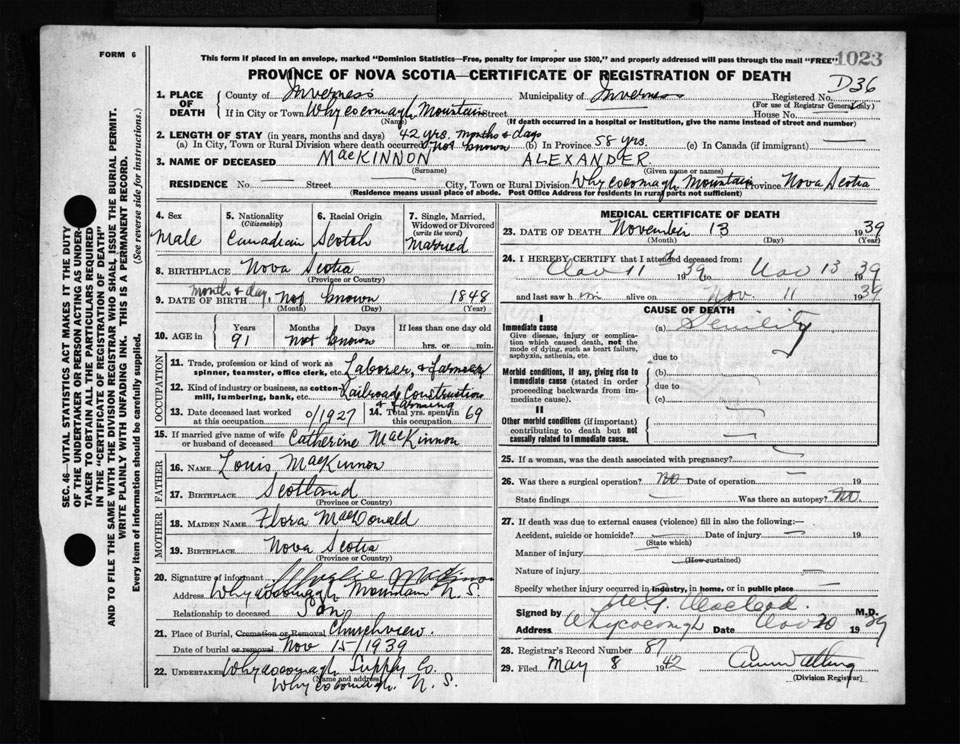 FORM 6
This form if placed in an envelope, marked "Dominion Statistics—Free, penalty for improper use $300," and properly addressed will pass through the mail "FREE"
1023
PROVINCE OF NOVA SCOTIA—CERTIFICATE OF REGISTRATION OF DEATH
D36
1. PLACE OF DEATH County of Inverness Municipality of Inverness Registered No.
(For use of Registrar General only)
If in City or Town Whycocomagh Mountain Street House No.
(Name) (If death occurred in a hospital or institution, give the name instead of street and number)
2. LENGTH OF STAY (in years, months and days) 42 yrs. months & days
(a) In City, Town or Rural Division where death occurred not known (b) In Province 58 yrs. (c) In Canada (if immigrant) —
3. NAME OF DECEASED MacKINNON ALEXANDER
(Surname) (Given name or names)
RESIDENCE No. — Street — City, Town or Rural Division Whycocomagh Mountain Province Nova Scotia
(Residence means usual place of abode. Post Office Address for residents in rural parts not sufficient)
4. Sex
Male
5. Nationality
(Citizenship)
Canadian
6. Racial Origin
Scotch
7. Single, Married, Widowed or Divorced
(write the word)
Married
8. BIRTHPLACE Nova Scotia
(Province or Country)
9. DATE OF BIRTH month & day not known 1848
(Month) (Day) (Year)
10. AGE in Years Months Days If less than one day old
91 not known hrs. or min.
OCCUPATION
11. Trade, profession or kind of work as spinner, teamster, office clerk, etc. Laborer, & farmer
12. Kind of industry or business, as cotton-mill, lumbering, bank, etc. Railroad Construction & farming
13. Date deceased last worked at this occupation 0/1927 14. Total yrs. spent in 69
15. If married give name of wife or husband of deceased Catherine MacKinnon
FATHER
16. NAME Louis MacKinnon
17. BIRTHPLACE Scotland
(Province or Country)
MOTHER
18. MAIDEN NAME Flora MacDonald
19. BIRTHPLACE Nova Scotia
(Province or Country)
20. Signature of informant
Address Whycocomagh Mountain N.S.
Relationship to deceased Son
21. Place of Burial, Cremation or Removal Churchview.
Date of burial or removal Nov 15/1939
22. UNDERTAKER Whycocomagh Supply Co.
(Name and address)
Whycocomagh. N.S.
MEDICAL CERTIFICATE OF DEATH
23. DATE OF DEATH November 13 1939
(Month) (Day) (Year)
24. I HEREBY CERTIFY that I attended deceased from:
Nov 11th 1939 to Nov 13 1939
and last saw him alive on Nov. 11 1939
CAUSE OF DEATH
I
Immediate cause
Give disease, injury or complication which caused death, not the mode of dying, such as heart failure, asphyxia, asthenia, etc.
(a) Senility
due to
Morbid conditions, if any, giving rise to immediate cause (stated in order proceeding backwards from immediate cause).
(b)
due to
(c)
II
Other morbid conditions (if important) contributing to death but not causally related to immediate cause.
25. If a woman, was the death associated with pregnancy?
26. Was there a surgical operation? No Date of operation — 19
State findings — Was there an autopsy? No.
27. If death was due to external causes (violence) fill in also the following:—
Accident, suicide or homicide? Date of injury — 19
(State which)
Manner of injury
(How sustained)
Nature of injury
Specify whether injury occurred in industry, in home, or in public place
Signed by MacLeod. M.D.
Address Whycocomagh Date Nov 20 1939
28. Registrar's Record Number 87
29. Filed May 8 1942
(Division Registrar)
SEC. 46—VITAL STATISTICS ACT MAKES IT THE DUTY
OF THE UNDERTAKER OR PERSON ACTING AS UNDER-
TAKER TO OBTAIN ALL THE PARTICULARS REQUIRED
IN THE "CERTIFICATE OF REGISTRATION OF DEATH"
AND TO FILE THE SAME WITH THE DIVISION REGISTRAR WHO SHALL ISSUE THE BURIAL PERMIT.
WRITE PLAINLY WITH UNFADING INK. THIS IS A PERMANENT RECORD.
Every item of information should be carefully supplied. (See reverse side for instructions.)